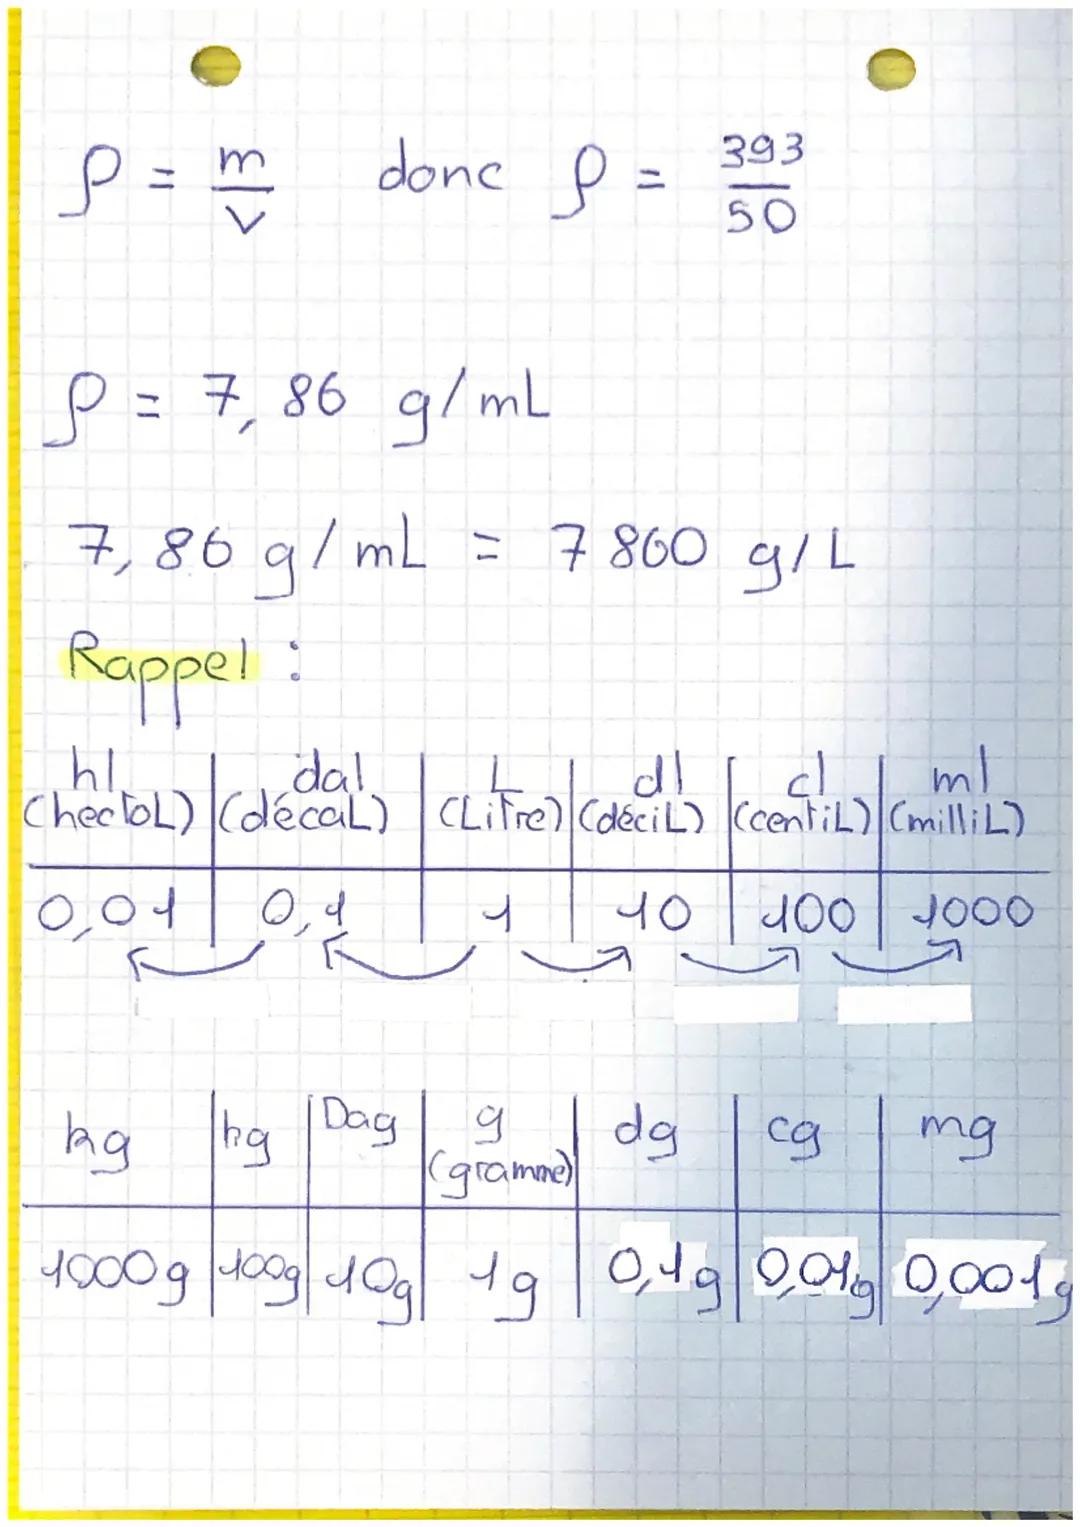 ρ = m/v donc ρ = 393/50
ρ = 7,86 g/mL
7,86 g/mL = 7860 g/L
Rappel :
hl | dal | L | dl | cl | ml
(hectoL) | (décaL) | (Litre) | (déciL) | (centiL) | (milliL)
0,01 | 0,1 | 1 | 10 | 100 | 1000
kg | hg | Dag | g | dg | cg | mg
(gramme)
1000g | 100g | 10g | 1g | 0,1g | 0,01g | 0,001g